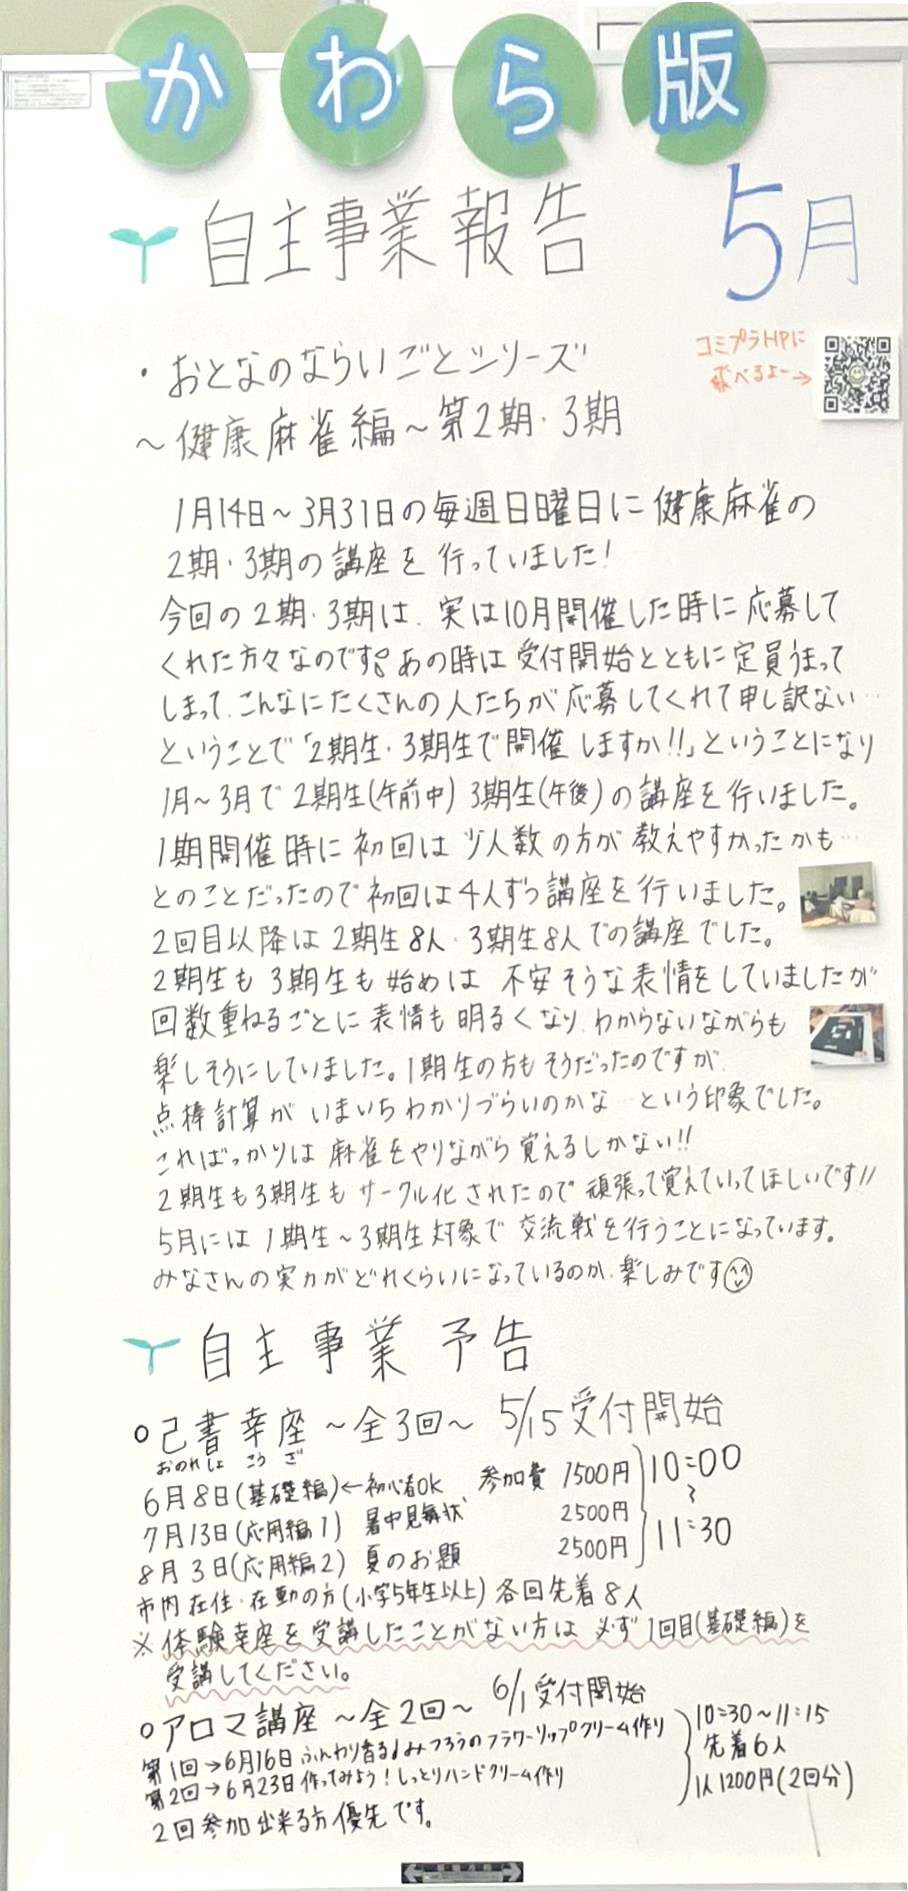 かわら版
自主事業報告
5月
コミプラHPに
飛べるよー→
・おとなのならいごとシリーズ
～健康麻雀編～第2期・3期
1月14日～3月31日の毎週日曜日に健康麻雀の
2期・3期の講座を行っていました!
今回の2期・3期は、実は10月開催した時に応募して
くれた方々なのです。あの時は受付開始とともに定員うまって
しまって、こんなにたくさんの人たちが応募してくれて申し訳ない…
ということで「2期生・3期生で開催しますか!!」ということになり
1月～3月で2期生(午前中)3期生(午後)の講座を行いました。
1期開催時に初回は少人数の方が教えやすかったかも…
とのことだったので初回は4人ずつ講座を行いました。
2回目以降は2期生8人・3期生8人での講座でした。
2期生も3期生も始めは不安そうな表情をしていましたが
回数重ねるごとに表情も明るくなり、わからないながらも
楽しそうにしていました。1期生の方もそうだったのですが、
点棒計算がいまいちわかりづらいのかな…という印象でした。
こればっかりは麻雀をやりながら覚えるしかない!!
2期生も3期生もサークル化されたので頑張って覚えていってほしいです!!
5月には1期生～3期生対象で交流戦を行うことになっています。
みなさんの実力がどれくらいになっているのか、楽しみです
自主事業予告
○己書幸座～全3回～ 5/15受付開始
おのれしょこうざ
6月8日(基礎編)←初心者OK 参加費 1500円
7月13日(応用編1) 暑中見舞状 2500円
8月3日(応用編2) 夏のお題 2500円
10:00
～
11:30
市内在住・在勤の方(小学5年生以上)各回先着8人
※体験幸座を受講したことがない方は必ず1回目(基礎編)を
受講してください。
○アロマ講座～全2回～ 6/1受付開始
第1回→6月16日ふんわり香る♪みつろうのフラワーリップクリーム作り
第2回→6月23日作ってみよう!しっとりハンドクリーム作り
10:30～11:15
先着6人
1人1200円(2回分)
2回参加出来る方優先です。